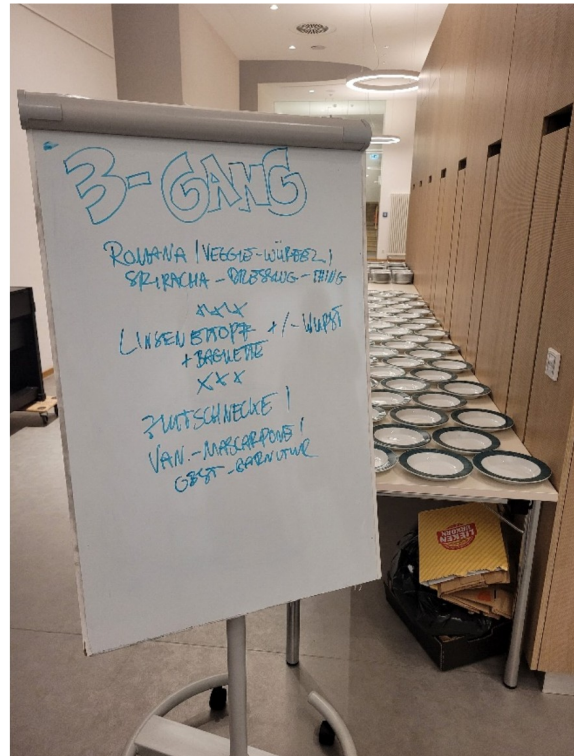 3-GANG
ROMANA | VEGGIE-WÜRFEL |
SRIRACHA-DRESSING-THING
XXX
LINSENEITOPF +/- WURST
+ BAGUETTE
XXX
ZIMTSCHNECKE |
VAN.-MASCARPONE |
OBST-GARNITUR
LIEKEN
URKORN